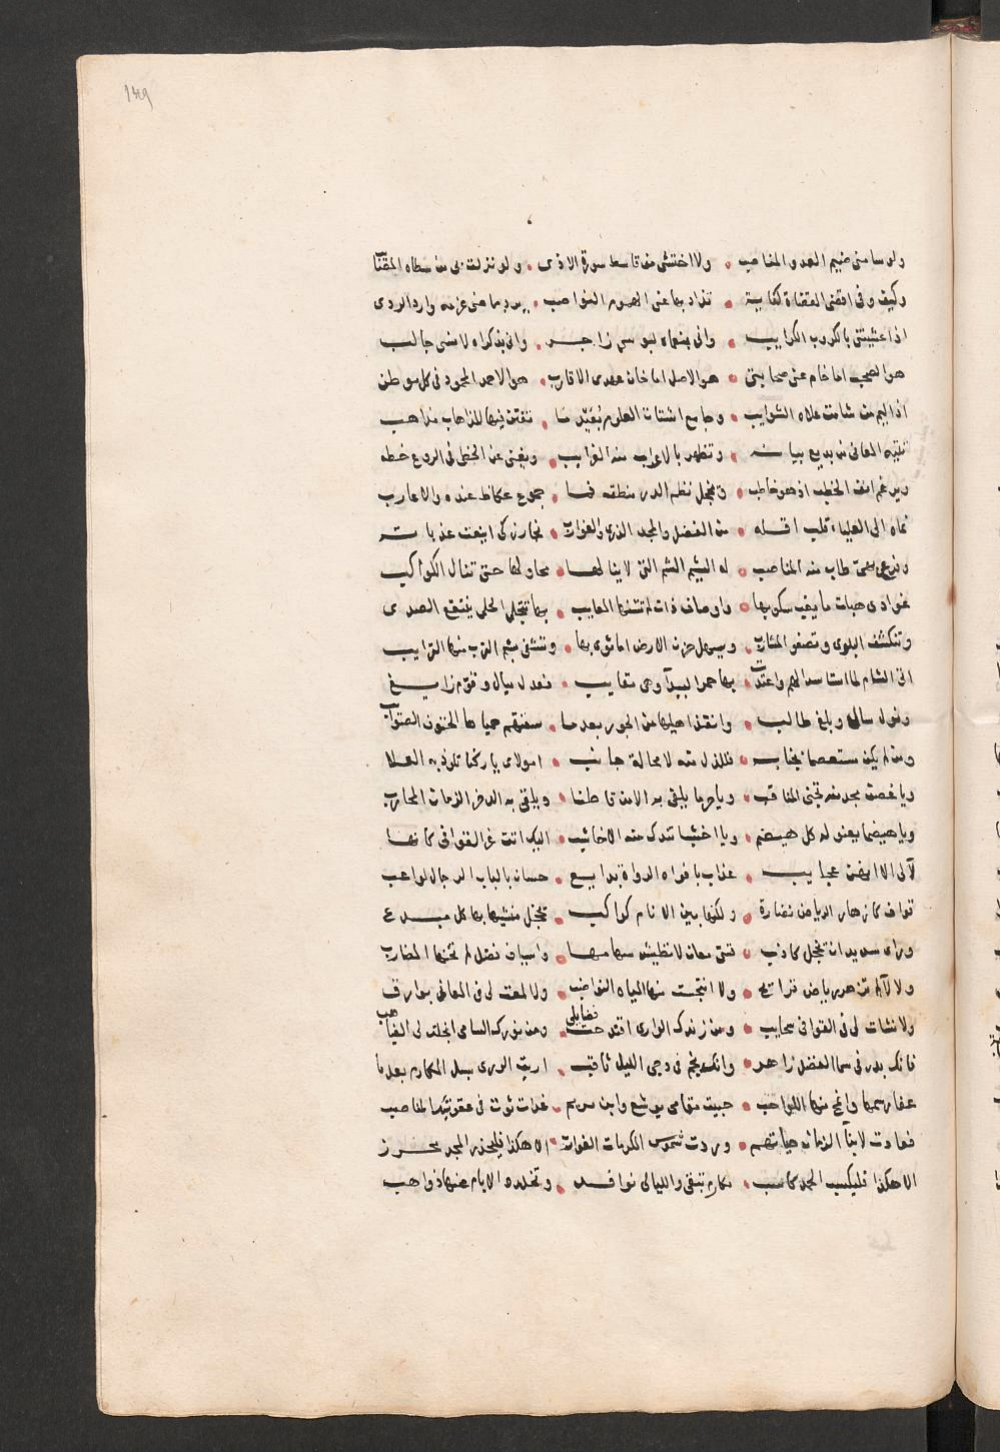 ولو سامني ضيم العدو المغاضب • ولا اختشى من قاسط سورة الاذى • ولو نزلت بي من سطاه المقنا
وكيف وفي اقصى العفناة كفاية • تذاد بها عني الهموم النواصب • يرد ما ضي عزمه وارد الردى
اذا غشيتني بالكروب الكرايب • واني بنعماه لبوسي زاجر • واني بذكراه لامني جالب
هو الصحب اما خام عني صحابتي • هو الاصل اما خان عهدي الاقارب • هو الاحمد المحمود في كل موطن
اذا اليم من شامت علاه الشوايب • وجامع اشتات العلوم بفيد ما • تفتن فيها للذهاب مذاهب
المعاني من بديع بيانه • وتظهر بالاعراب منه الغرايب • ويغني عن الخطي في الروع خطه
ويرغم انف الخطب اذ هو خاطب • وتخجل نظم الدر منطقه فما • جموع عكاظ عنده والاعارب
نماه الى العلياء قلب • من الفضل والمجد الذرى والغوارب • نجار زكى اينعت عذباته
وفرع طاب منه المناصب • له الشيم الشم التي لا ينالها • محاولها حتى تنال الكواكب
غوادي هبات ما يغب سكوبها • واوصاف ذات لم تشنها المعايب • بها تنجلي الجلى ينتقع الصدى
وتنكشف البلوى وتصفو المشارب • ويسهل حزن الارض اما ثوى بها • وتشفى بشم الترب منها الترايب
اتى الشام لما استاسد الهم واعتدت • بها حمر البيدآ وهي • فعدل ميال وقوم زايغ
ونول سال وبلغ طالب • وانقذ اهليها من الجور بعدما • سقتهم حمياها الحتوف الصوايب
ومن لم يكن مستعصما بجنابه • فللذل منه لا محالة جانب • امولاي يا ركنا تلوذ به العلا
ويا غصن مجد منه تجنى المناقب • ويا حرما يلقى به الامن قاطنا • ويلقى به الدهر الزمان المحارب
ويا هيضما يعنو له كل هيضم • ويا اخشبا تندك منه الاخاشب • اليك اتت غر القوافي كانها
لآلي الا انهن عجايب • عذاب بافواه الرواة بدايع • حسان بالباب الرجال لواعب
قواف كازهار الرياض نضارة • ولكنها بين الانام كواكب • تخجل منشيها بها كل مبدع
وراى سديد ان تخجل كاذب • فتى معان لا تطيش سهامها • واسياف فضل لم تخنها المضارب
ولا لآلم تزهر رياض قرايح • ولا انبجست منها المياه النواضب • ولا لمعت لي في المعاني بوارق
ولا نشات لي في القوافي سحايب • ومن زندك الوارى اقتدحت فضايلي • ومن نورك السامي انجلت لي الغياهب
فانك بدر في سما الفضل زاهر • وانك نجم في دجى الليل ثاقب • اريت الورى سبل المكارم بعدما
عفا رسمها وانمح منها اللواحب • حبيت مقامي يوشع وابن مريم •
فعادت لابنآ الزمان حياتهم • وردت شموس المكرمات الغوارب • الا هكذا فليحذر المجد محرز
الا هكذا فليكسب الحمد كاسب • مكارم تبقى والليالي نوافد • وتخلد والايام عنها ذواهب